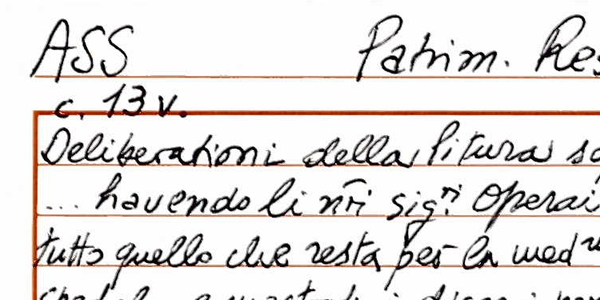 ASS Patrim. Res
c. 13 v.
Deliberationi della Pitura
... havendo li nr̃i sig.ri Operai
tutto quello che resta per la med.